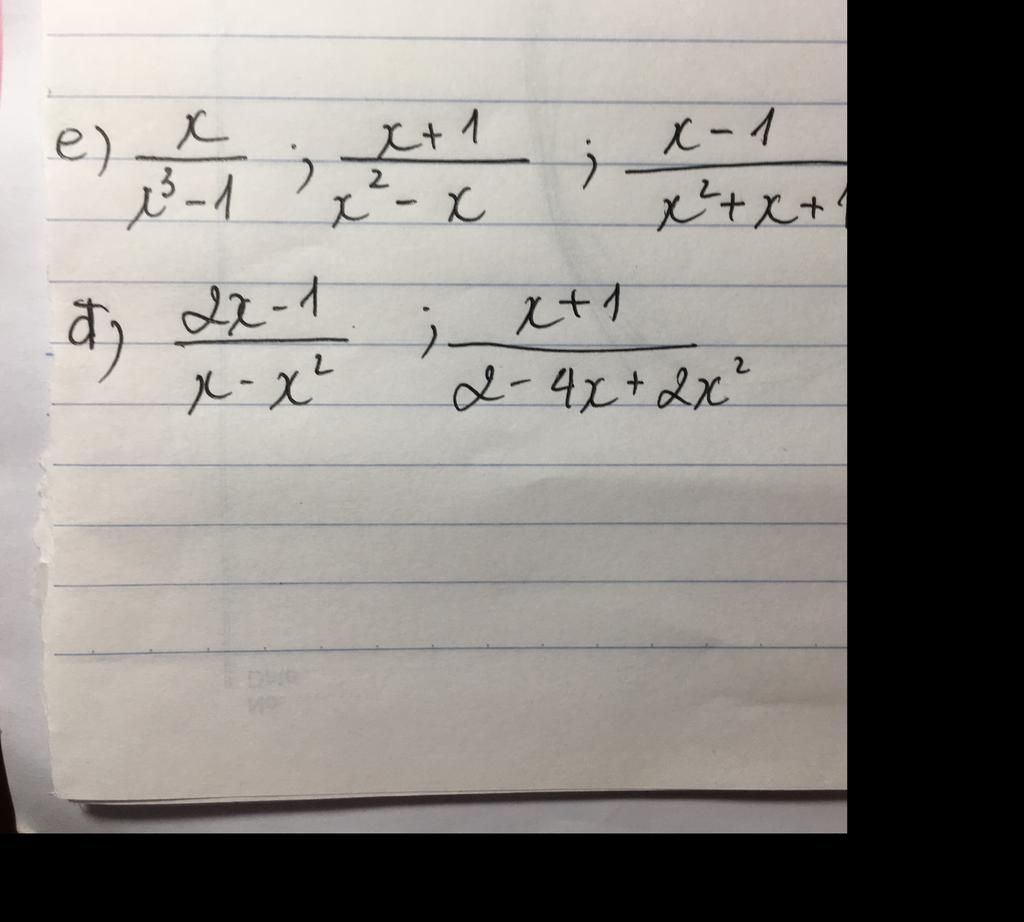 e) x/(x³-1) ; (x+1)/(x²-x) ; (x-1)/(x²+x+1
đ) (2x-1)/(x-x²) ; (x+1)/(2-4x+2x²)